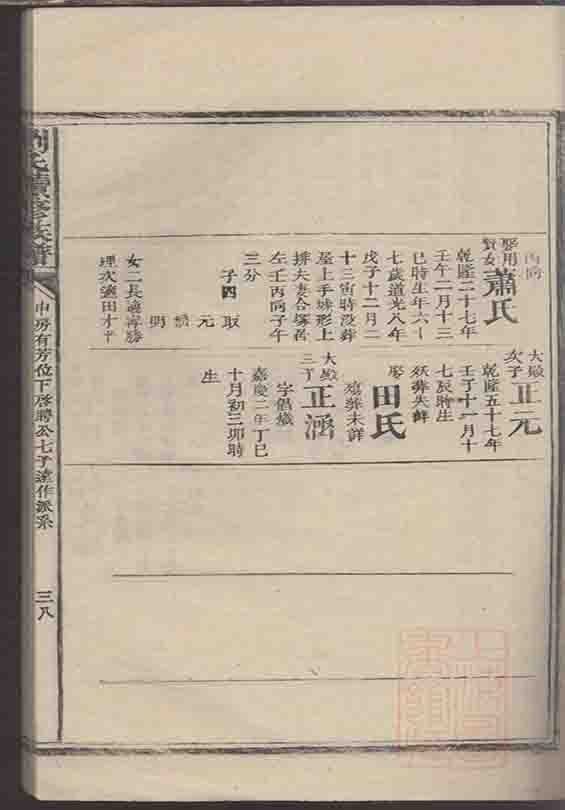 丙向
娶用
賢女
蕭氏
乾隆二十七年
壬午二月十三
巳時生年六十
七歲道光八年
戊子十二月二
十三寅時沒葬
屋上手城形上
排夫妻合塚呂
左壬丙向子午
三分
子四
取
元
明
女二長適寗勝
理次適田才平
大㘾
次子
正元
乾隆五十七年
壬子十一月十
七辰時生
歿葬失詳
娶
田氏
歿葬未詳
大㘾
三子
正涵
字倡懺
嘉慶二年丁巳
十月初三卯時
生
劉氏續修族譜
中房有芳位下啓將公七子達作派系
三八